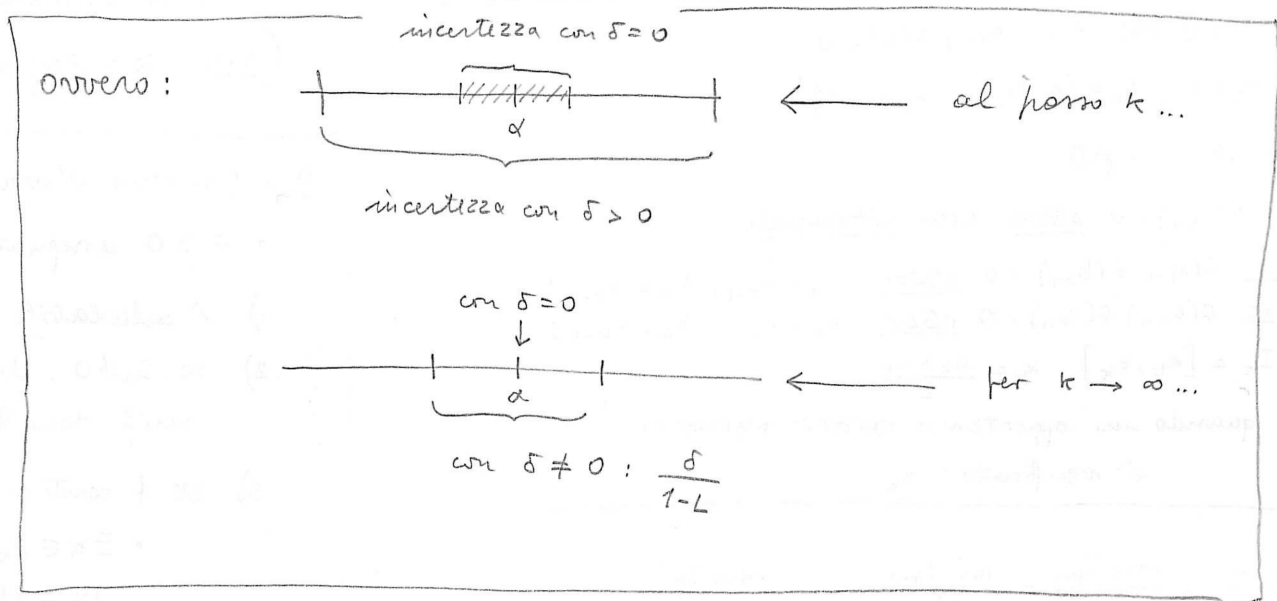 incertezza con δ=0
ovvero:
α
← al passo k...
incertezza con δ > 0
con δ=0
↓
α
← per k → ∞...
con δ ≠ 0 : δ/(1-L)